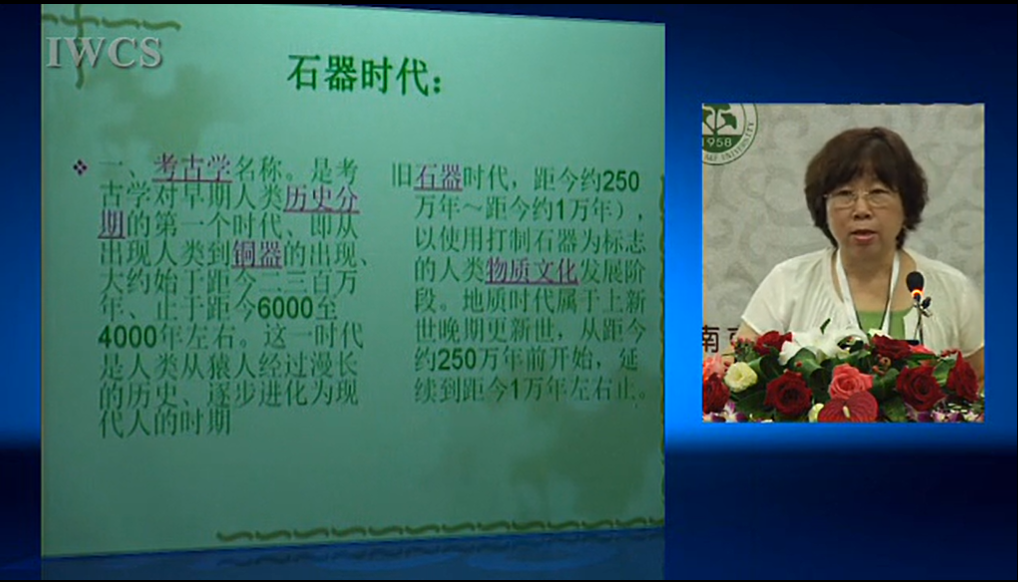 IWCS
石器时代：
一、考古学名称。是考
古学对早期人类历史分
期的第一个时代、即从
出现人类到铜器的出现、
大约始于距今二三百万
年、止于距今6000至
4000年左右。这一时代
是人类从猿人经过漫长
的历史、逐步进化为现
代人的时期
旧石器时代，距今约250
万年～距今约1万年），
以使用打制石器为标志
的人类物质文化发展阶
段。地质时代属于上新
世晚期更新世，从距今
约250万年前开始，延
续到距今1万年左右止。
1958
UNIVERSITY
南